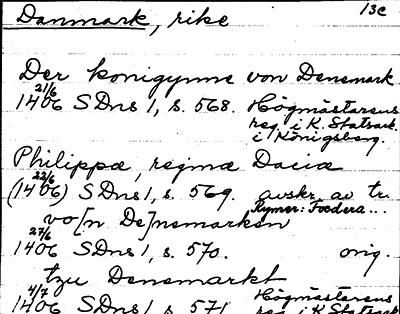 Danmark, rike 13c
Der konigynne von Densmark
21/6
1406 SDns 1, s. 568. Högmästarens
reg. i K. Statsark.
i Königsberg.
Philippæ, regina Daciæ
22/6
(1406) SDns 1, s. 569. avskr. av tr.
Rymer: Foedera...
vo[n De]nsmarken
27/6
1406 SDns 1, s. 570. orig.
tzu Densmarkt
4/7
1406 SDns 1, s. 571 Högmästarens
reg. i K. Statsark.